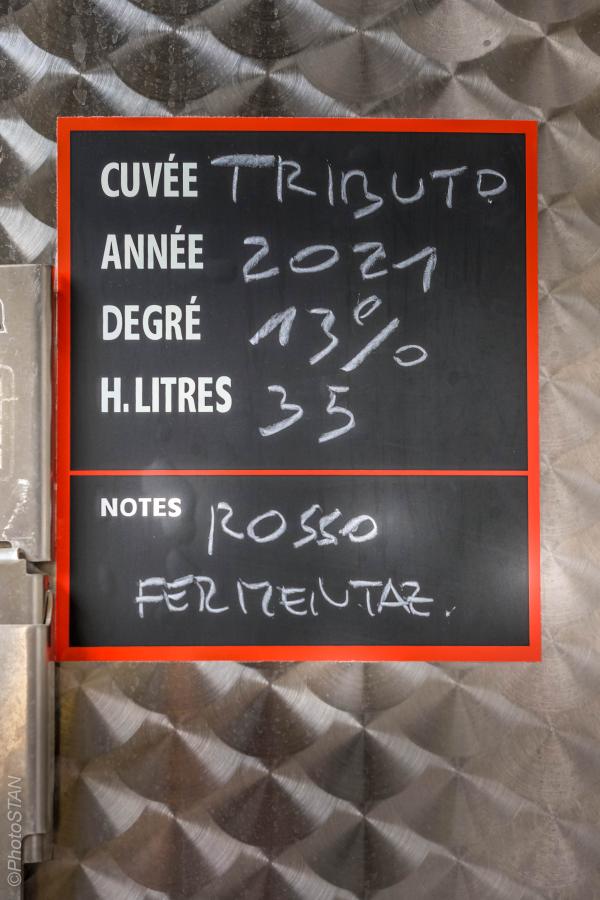 CUVÉE TRIBUTO
ANNÉE 2021
DEGRÉ 13%
H.LITRES 35
NOTES ROSSO
FERMENTAZ.
©PhotoSTAN